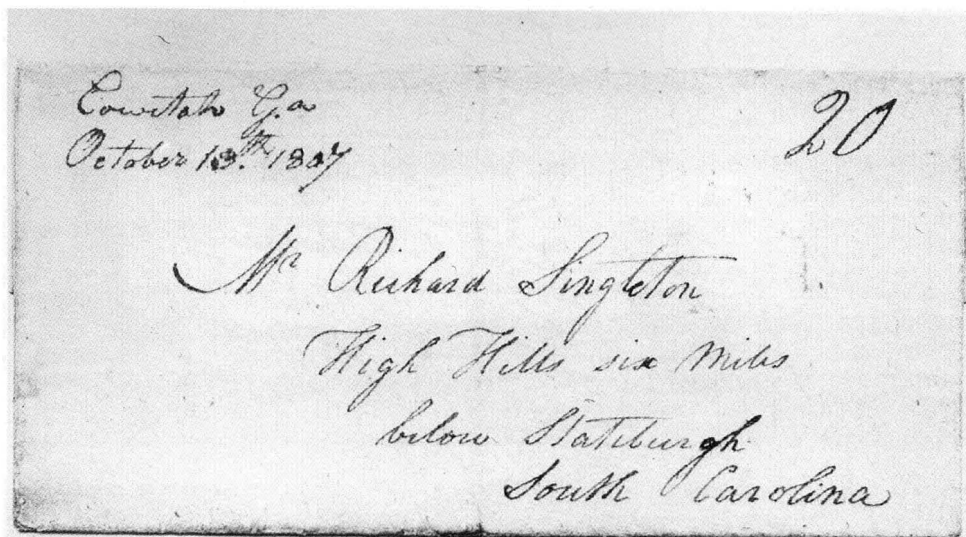 Cowetah G.a
October 13.th 1807
20
Mr Richard Singleton
High Hills six miles
below Stateburgh
South Carolina